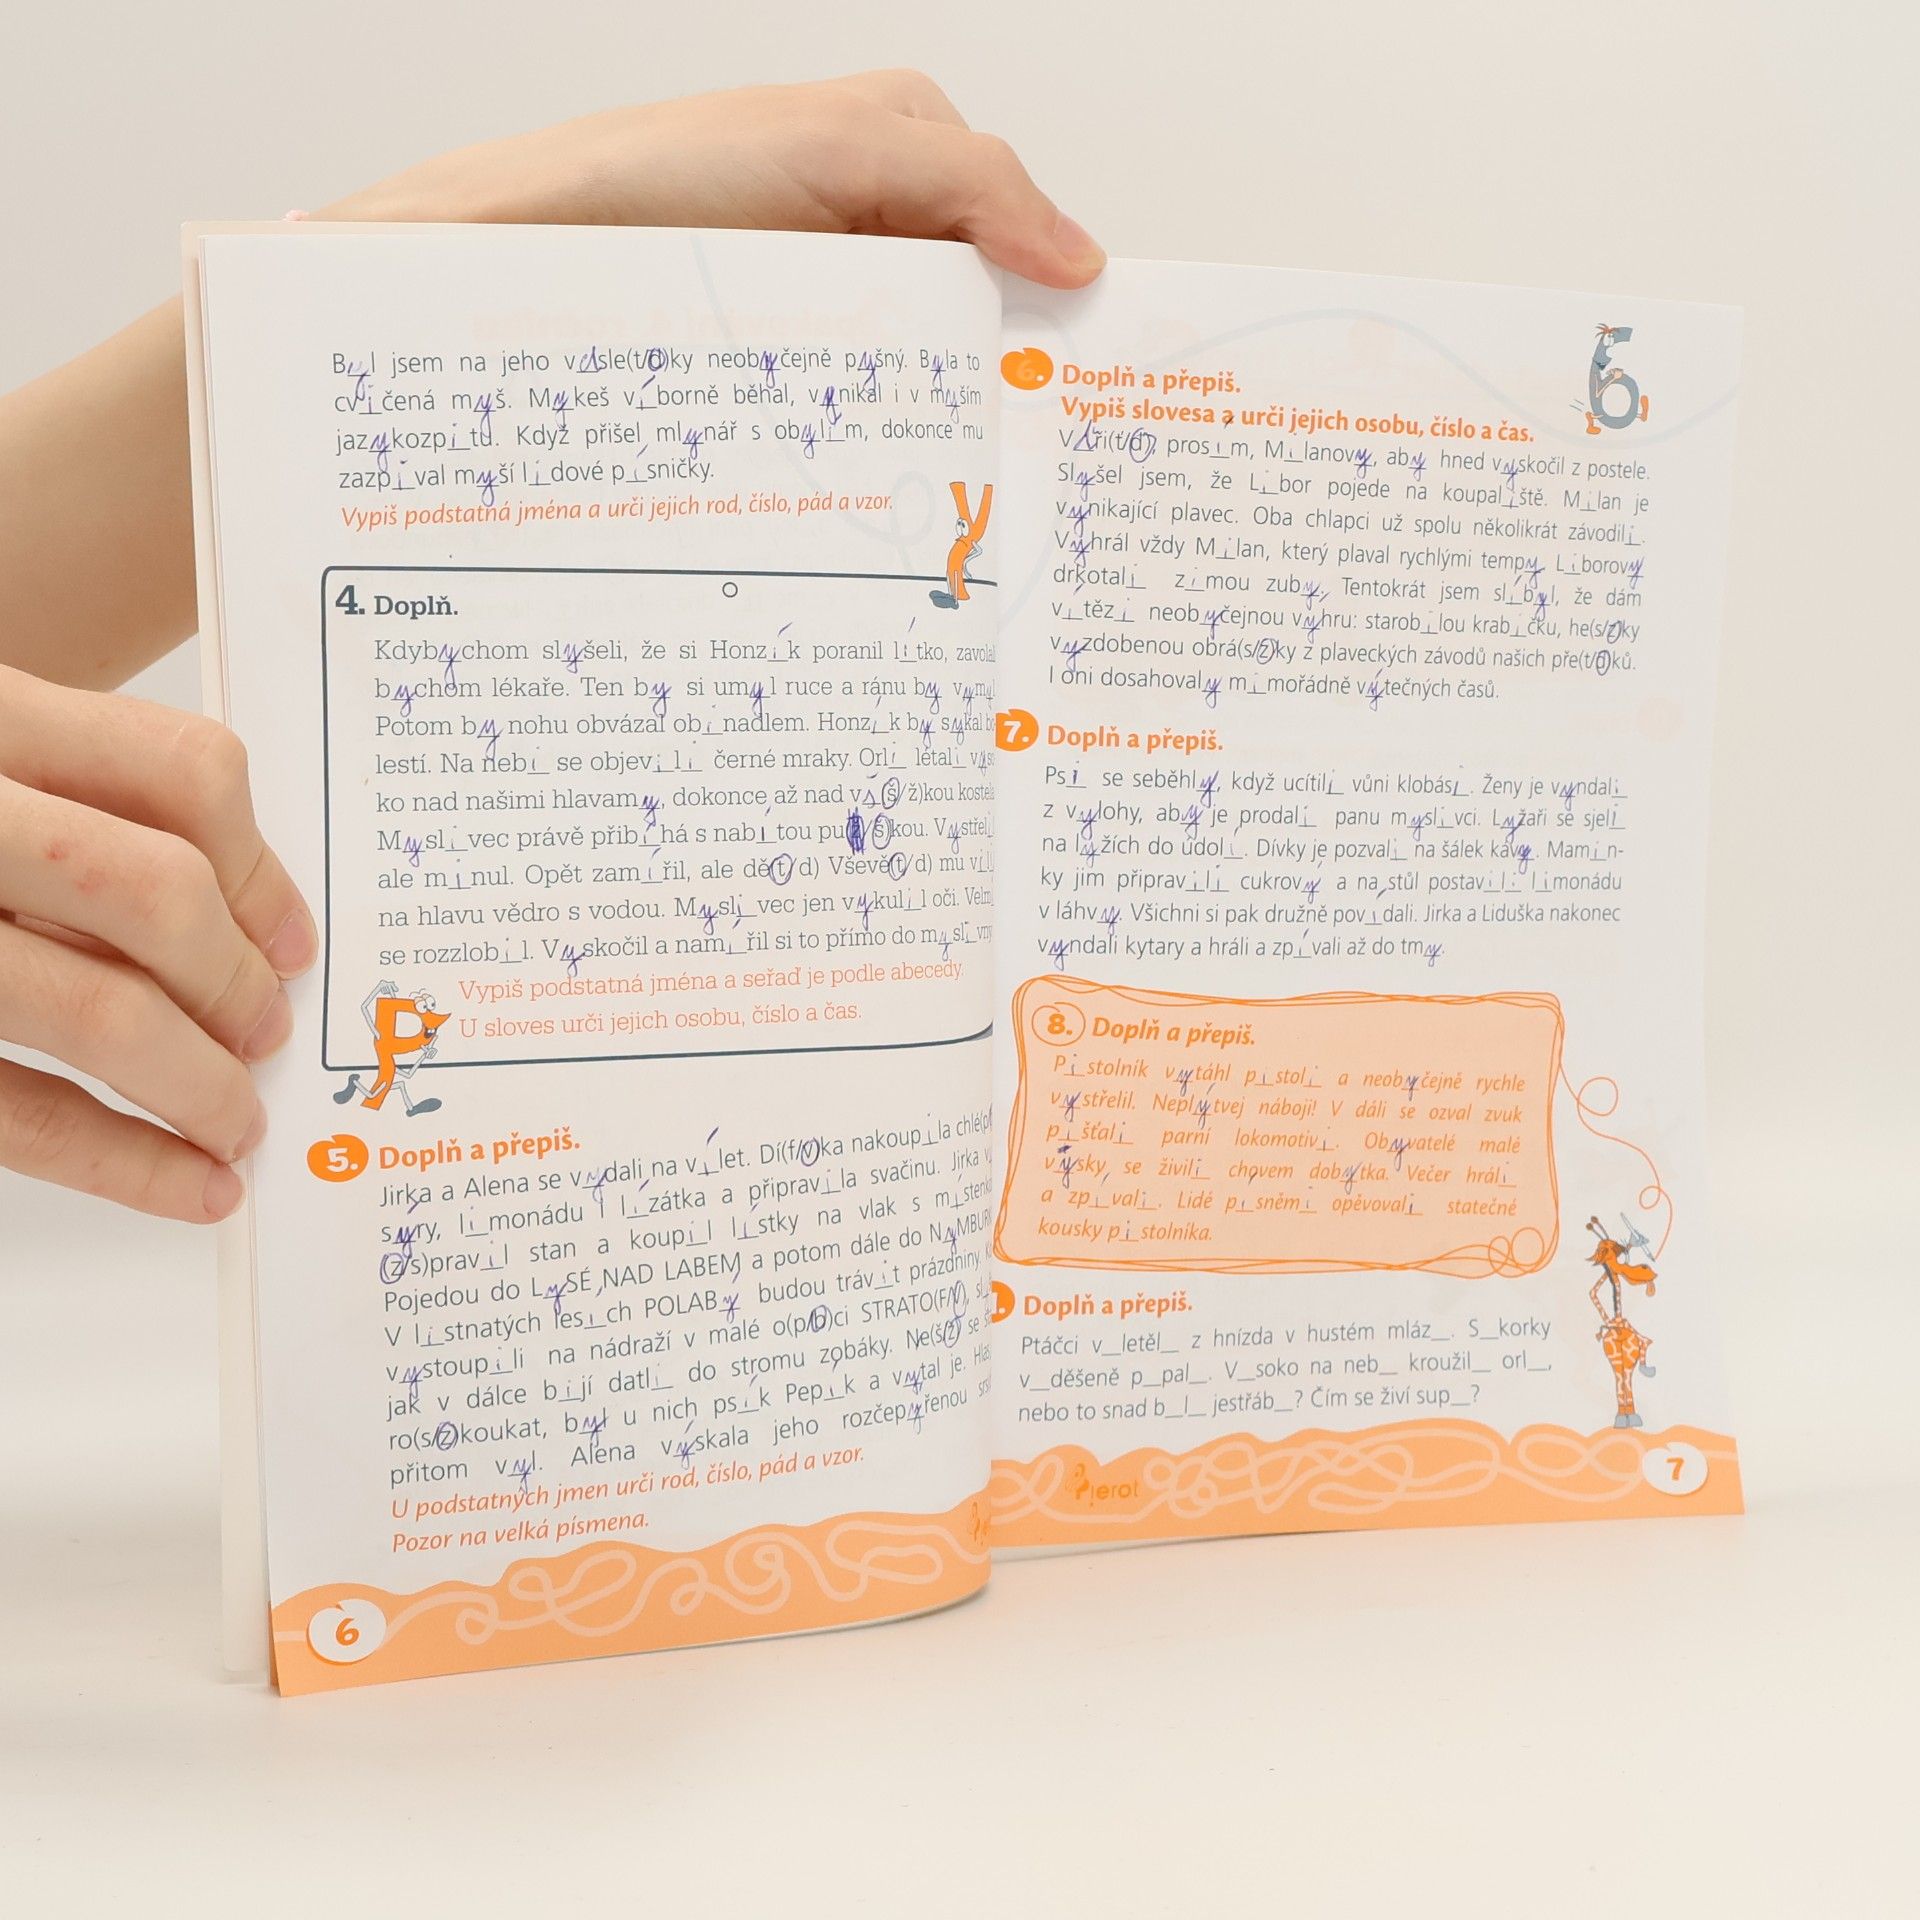 Byl jsem na jeho výsle(t/d)ky neobyčejně pyšný. Byla to
cvičená myš. Mykeš víborně běhal, vynikal i v myším
jazykozpitu. Když přišel mlynář s obylím, dokonce mu
zazpíval myší lidové písničky.
Vypiš podstatná jména a urči jejich rod, číslo, pád a vzor.
4. Doplň.
Kdybychom slyšeli, že si Honzík poranil lítko, zavolal
bychom lékaře. Ten by si umyl ruce a ránu by vymyl
Potom by nohu obvázal obinadlem. Honzík by sykal bo
lestí. Na nebi se objevili černé mraky. Orli létali vyso
ko nad našimi hlavamy, dokonce až nad vý(š/ž)kou kostela
Myslivec právě přibíhá s nabitou pu(ž/š)kou. Vystřelil
ale minul. Opět zamířil, ale dě(t/d) Vševě(t/d) mu vili
na hlavu vědro s vodou. Myslivec jen vykulil oči. Velmi
se rozzlobil. Vyskočil a namířil si to přímo do myslivny
Vypiš podstatná jména a seřaď je podle abecedy.
U sloves urči jejich osobu, číslo a čas.
5. Doplň a přepiš.
Jirka a Alena se vydali na vílet. Dí(f/v)ka nakoupila chlé(p/
sýry, limonádu i lízátka a připravila svačinu. Jirka v
(z/s)pravil stan a koupil lístky na vlak s místenk
Pojedou do LySÉ NAD LABEM a potom dále do NyMBURK
V listnatých lesích POLABý budou trávit prázdniny. K
vystoupili na nádraží v malé o(p/b)ci STRATO(F/V), sl
jak v dálce bijí datli do stromu zobáky. Ne(š/ž) se s
ro(s/z)koukat, byl u nich psík Pepík a vytal je. Hlas
přitom vyl. Alena výskala jeho rozčepyřenou srs
U podstatných jmen urči rod, číslo, pád a vzor.
Pozor na velká písmena.
6
6. Doplň a přepiš.
Vypiš slovesa a urči jejich osobu, číslo a čas.
Vyři(ť/ď), prosím, Milanovy, aby hned vyskočil z postele.
Slyšel jsem, že Libor pojede na koupaliště. Milan je
vynikající plavec. Oba chlapci už spolu několikrát závodili.
Vyhrál vždy Milan, který plaval rychlými tempy. Liborovy
drkotali zimou zuby. Tentokrát jsem slíbyl, že dám
vítězi neobyčejnou výhru: starobilou krabičku, he(s/z)ky
vyzdobenou obrá(s/z)ky z plaveckých závodů našich pře(t/d)ků.
I oni dosahovaly mimořádně výtečných časů.
7. Doplň a přepiš.
Psi se seběhly, když ucítili vůni klobási. Ženy je vyndali
z vylohy, aby je prodali panu myslivci. Lyžaři se sjeli
na lyžích do údolí. Dívky je pozvali na šálek kávy. Mamin-
ky jim připravili cukrový a na stůl postavili limonádu
v láhvy. Všichni si pak družně povídali. Jirka a Liduška nakonec
vyndali kytary a hráli a zpívali až do tmy.
8. Doplň a přepiš.
Pistolník vytáhl pistoli a neobyčejně rychle
vystřelil. Neplýtvej náboji! V dáli se ozval zvuk
píšťali parní lokomotivi. Obyvatelé malé
výsky se živili chovem dobytka. Večer hráli
a zpívali. Lidé písněmi opěvovali statečné
kousky pistolníka.
Doplň a přepiš.
Ptáčci v_letěl_ z hnízda v hustém mláz_. S_korky
v_děšeně p_pal_. V_soko na neb_ kroužil_ orl_,
nebo to snad b_l_ jestřáb_? Čím se živí sup_?
Pierot
7